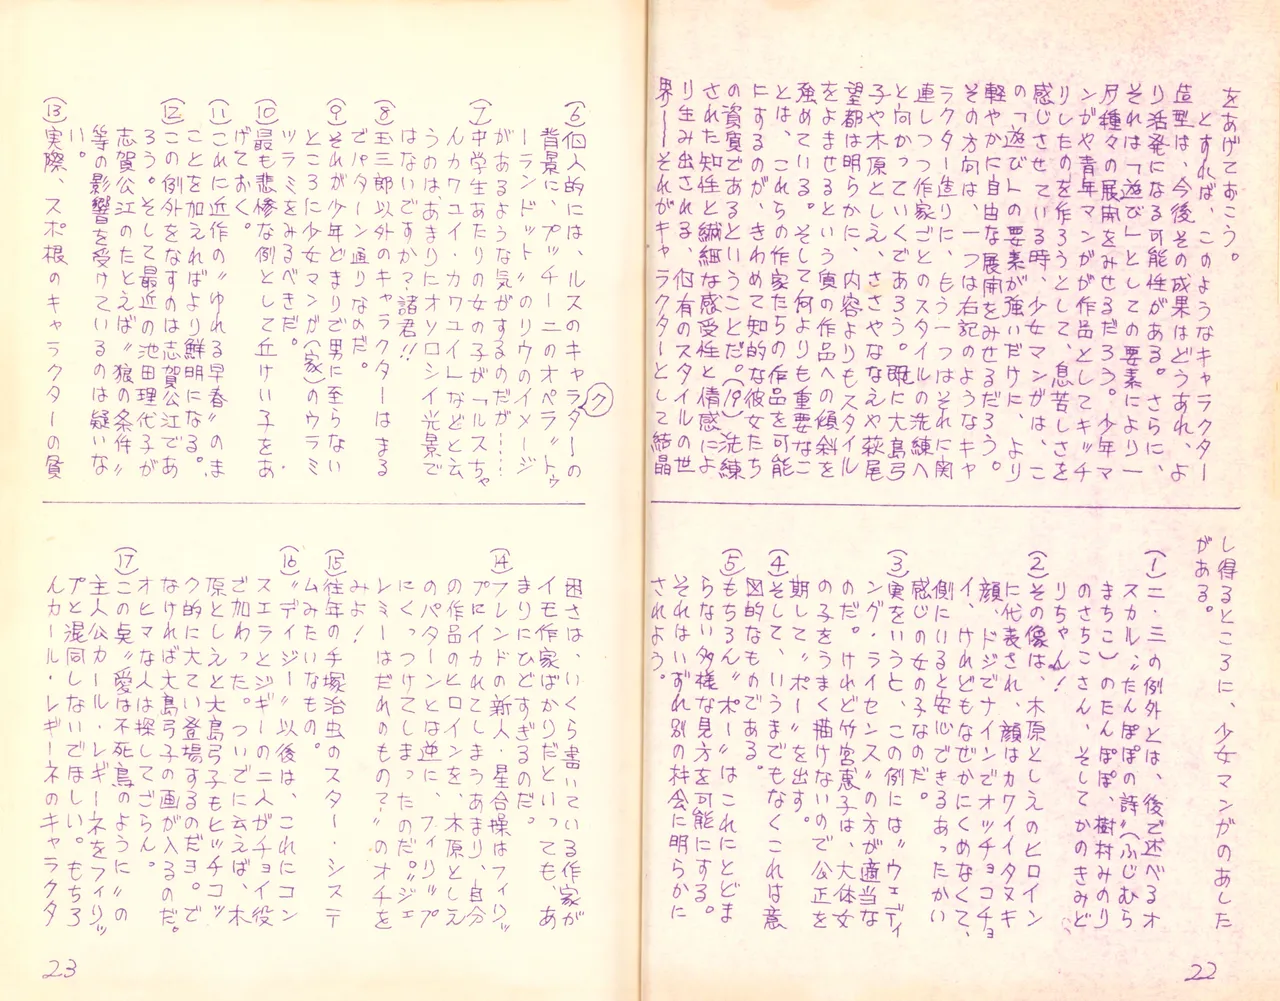 をあげておこう。
とすれば、このようなキャラクター
造型は、今後その成果はどうあれ、よ
り活発になる可能性がある。さらに、
それは「遊び」としての要素により一
層種々の展開をみせるだろう。少年マ
ンガや青年マンガが作品としてキッチ
リしたのを作ろうとして、息苦しさを
感じさせている時、少女マンガは、こ
の「遊び」の要素が強いだけに、より
軽やかに自由な展開をみせるだろう。
その方向は、一つは右記のようなキャ
ラクター造りに、もう一つはそれに関
連しつつ作家ごとのスタイルの洗練へ
と向かっていくであろう。既に大島弓
子や木原としえ、ささやななえや萩尾
望都は明らかに、内容よりもスタイル
をよませるという質の作品への傾斜を
強めている。そして何よりも重要なこ
とは、これらの作家たちの作品を可能
にするのが、きわめて知的な彼女たち
の資質であるということだ。(19)洗練
された知性と繊細な感受性と情感によ
り生み出される、個有のスタイルの世
界——それがキャラクターとして結晶
し得るところに、少女マンガのあした
がある。
(1) 二・三の例外とは、後で述べるオ
スカル、〝たんぽぽの詩〟(ふじむら
まちこ)のたんぽぽ、樹村みのり
のさちこさん、そしてかのきみど
りちゃん!
(2) その像は、木原としえのヒロイン
に代表され、顔はカワイイタヌキ
顔、ドジでナインでオッチョコチョ
イ、けれどもなぜかにくめなくて、
側にいると安心できるあったかい
感じの女の子なのだ。
(3) 実をいうと、この例には〝ウェディ
ング・ライセンス〟の方が適当な
のだ。けれど竹宮恵子は、大体女
の子をうまく描けないので公正を
期して〝ポー〟を出す。
(4) そして、いうまでもなくこれは意
図的なものである。
(5) もちろん〝ポー〟はこれにとどま
らない多様な見方を可能にする。
それはいずれ別の機会に明らかに
されよう。
22
(6) 個人的には、ルスのキャラクターの
背景に、プッチーニのオペラ〝トゥ
ーランドット〟のリウのイメージ
があるような気がするのだが……
(7) 中学生あたりの女の子が「ルスちゃ
んカワユイ・カワユイ」などと云
うのは、あまりにオソロシイ光景で
はないですか?諸君!!
(8) 玉三郎以外のキャラクターはまる
でパターン通りなのだ。
(9) それが少年どまりで男に至らない
ところに少女マンガ(家)のウラミ
ツラミをみるべきだ。
(10) 最も悲惨な例として丘けい子をあ
げておく。
(11) これに近作の〝ゆれる早春〟のま
ことを加えればより鮮明になる。
(12) この例外をなすのは志賀公江であ
ろう。そして最近の池田理代子が
志賀公江のたとえば〝狼の条件〟
等の影響を受けているのは疑いな
い。
(13) 実際、スポ根のキャラクターの貧
困さは、いくら書いている作家が
イモ作家ばかりだといっても、あ
まりにひどすぎるのだ。
(14) フレンドの新人・星合操はフィリッ
プにイカれてしまうあまり、自分
の作品のヒロインを、木原としえ
のパターンとは逆に、フィリップ
にくっつけてしまったのだ。〝ジェ
レミーはだれのもの?〟のオチを
みよ!
(15) 往年の手塚治虫のスター・システ
ムみたいなもの。
(16) 〝デイジー〟以後は、これにコン
スエラとジギーの二人がチョイ役
で加わった。ついでに云えば、木
原としえと大島弓子もヒッチコッ
ク的に大てい登場するのだヨ。で
なければ大島弓子の画が入るのだ。
オヒマな人は探してごらん。
(17) この点〝愛は不死鳥のように〟の
主人公カール・レギーネをフィリッ
プと混同しないでほしい。もちろ
んカール・レギーネのキャラクタ
23